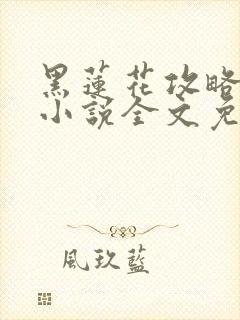 黑蓮花攻略
小說全文免
風玖藍